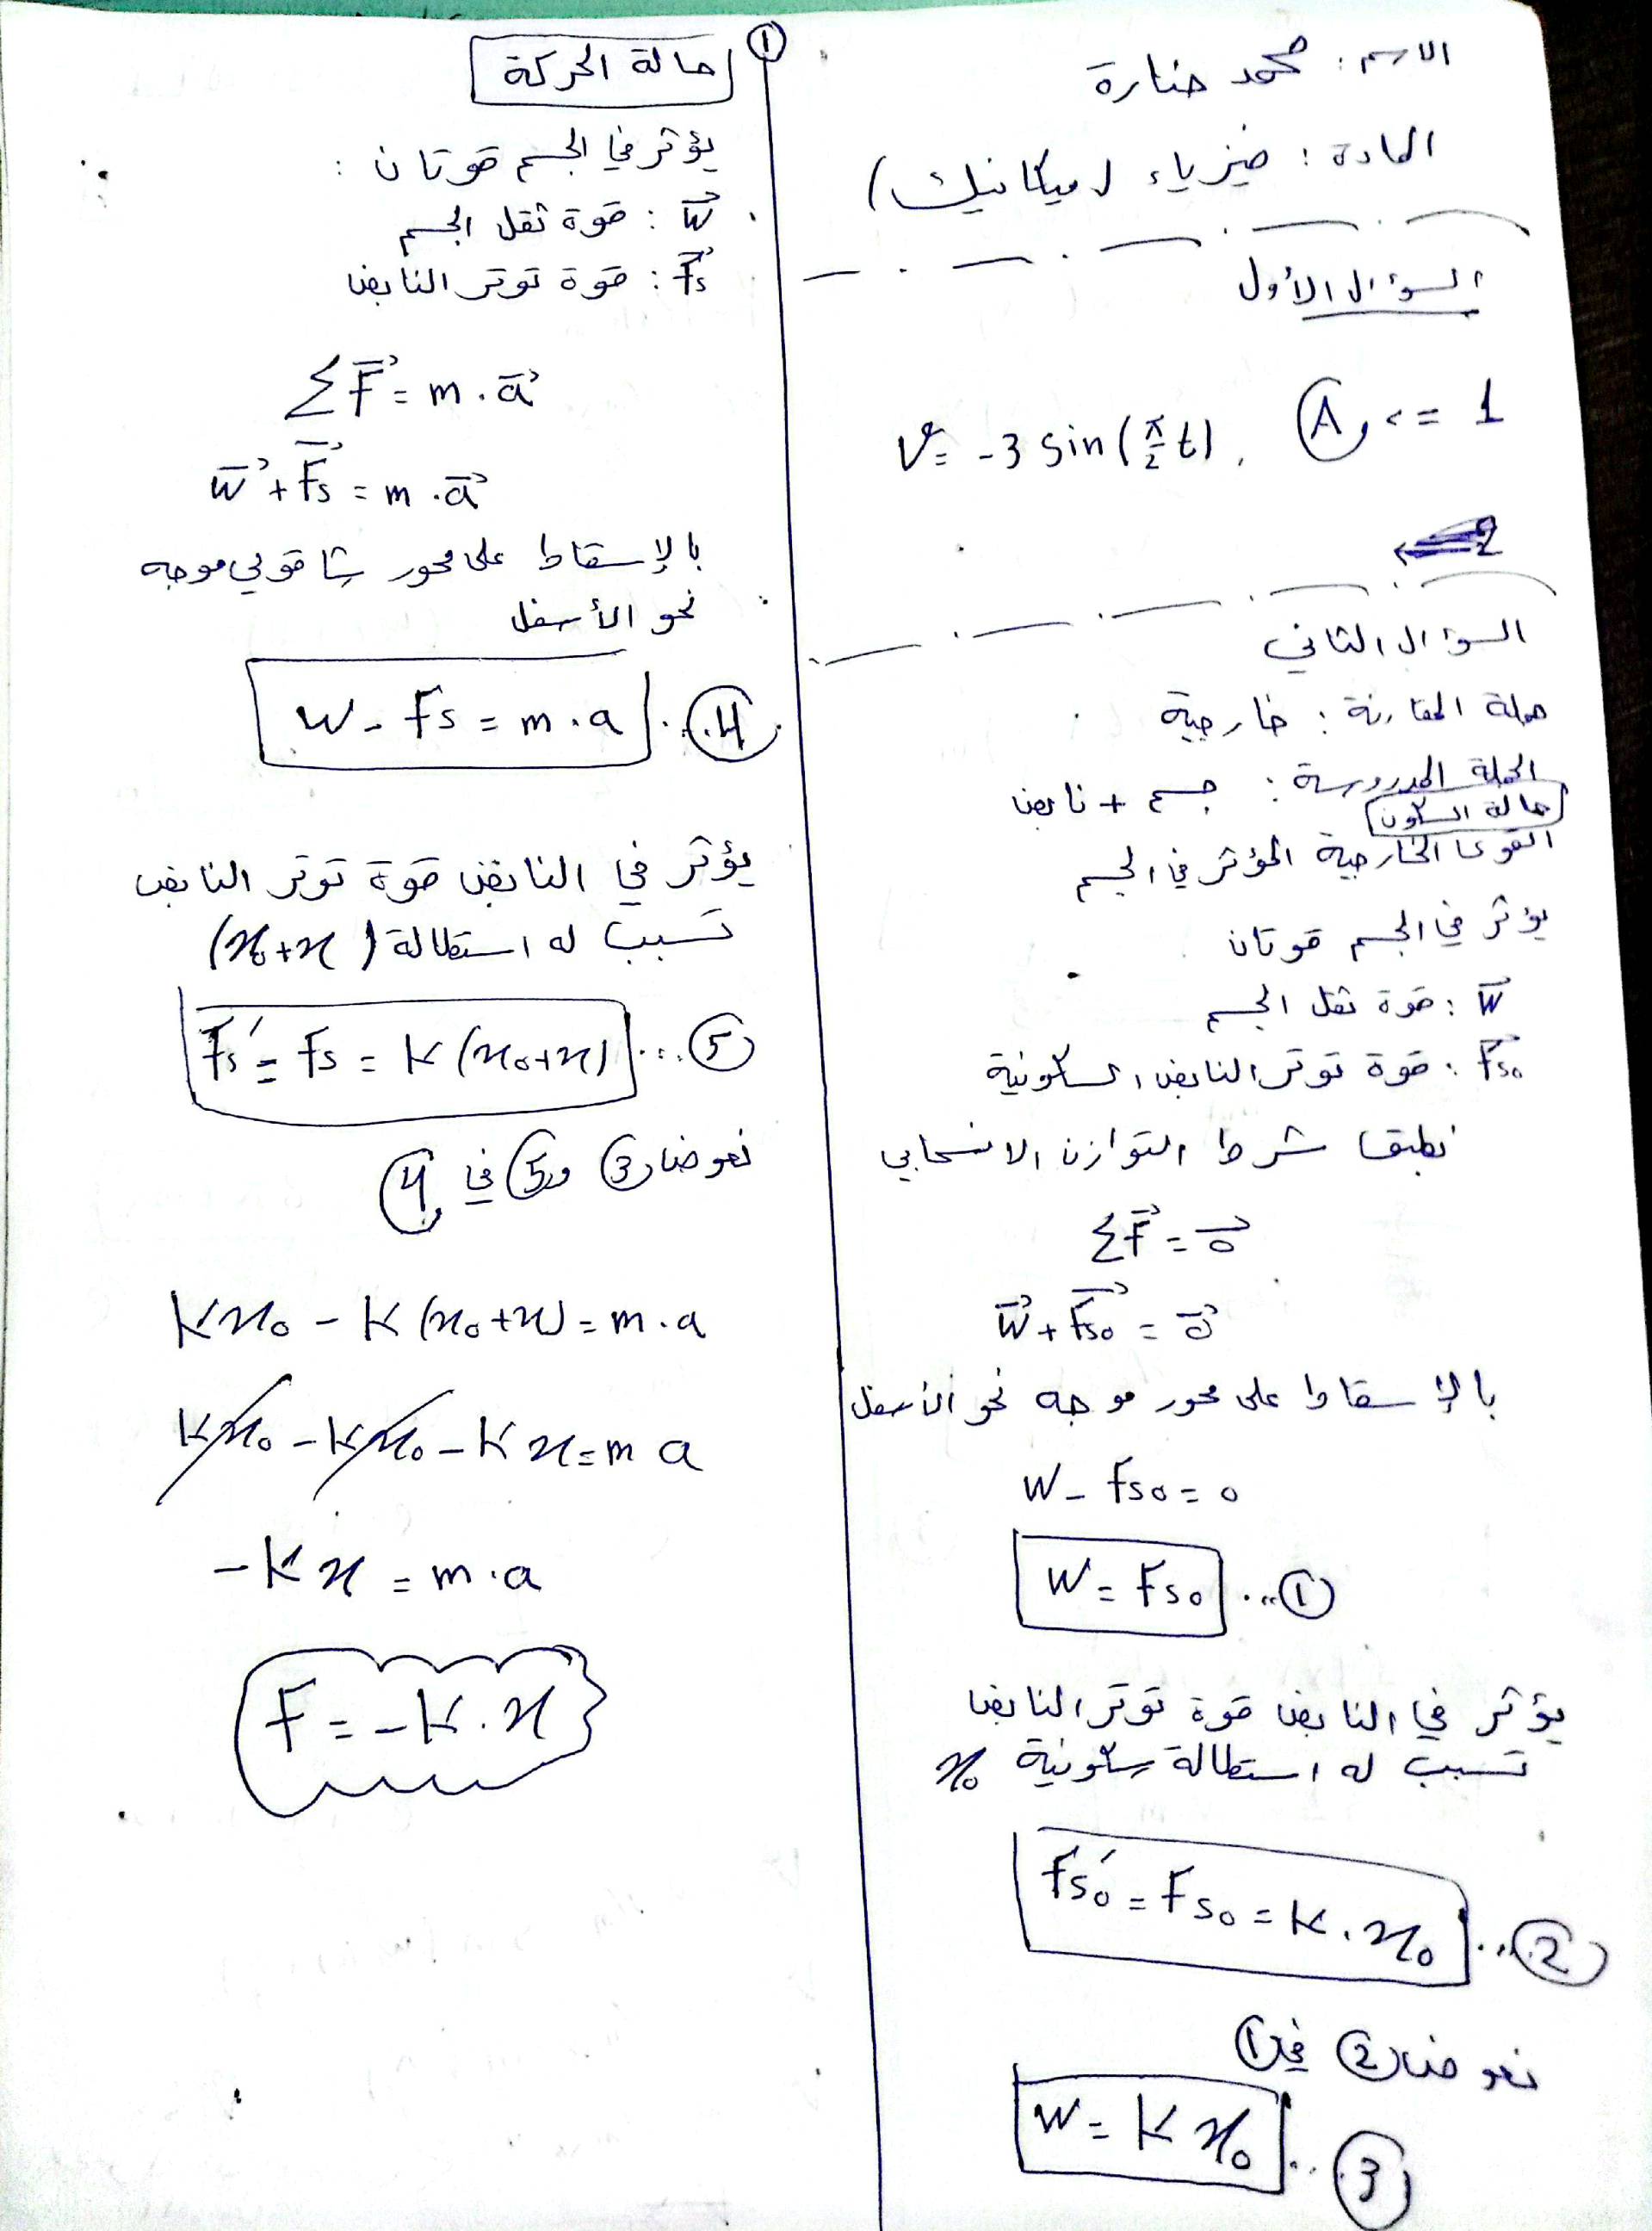 الاسم: محمد حنارة
المادة: فيزياء (ميكانيك)
السؤال الأول
1 => A, v = -3 sin(π/2 t)
2
السؤال الثاني
جملة المقارنة: خارجية
الجملة المدروسة: جسم + نابض
حالة السكون
القوى الخارجية المؤثر في الجسم
يؤثر في الجسم قوتان
W⃗: قوة ثقل الجسم
F⃗s₀: قوة توتر النابض السكونية
نطبق شرط التوازن الانسحابي
ΣF⃗ = 0⃗
W⃗ + F⃗s₀ = 0⃗
بالإسقاط على محور موجه نحو الأسفل
W - Fs₀ = 0
W = Fs₀ ...①
يؤثر في النابض قوة توتر النابض
تسبب له استطالة سكونية x₀
Fs₀′ = Fs₀ = K.x₀ ...②
نعوض ② في ①
W = K x₀ ...③
①
حالة الحركة
يؤثر في الجسم قوتان:
W⃗: قوة ثقل الجسم
F⃗s: قوة توتر النابض
ΣF⃗ = m.a⃗
W⃗ + F⃗s = m.a⃗
بالإسقاط على محور شاقولي موجه
نحو الأسفل
W - Fs = m.a ...④
يؤثر في النابض قوة توتر النابض
تسبب له استطالة (x₀+x)
Fs′ = Fs = K(x₀+x) ...⑤
نعوض ③ و⑤ في ④
Kx₀ - K(x₀+x) = m.a
Kx₀ - Kx₀ - Kx = m a
-Kx = m.a
F = -K.x